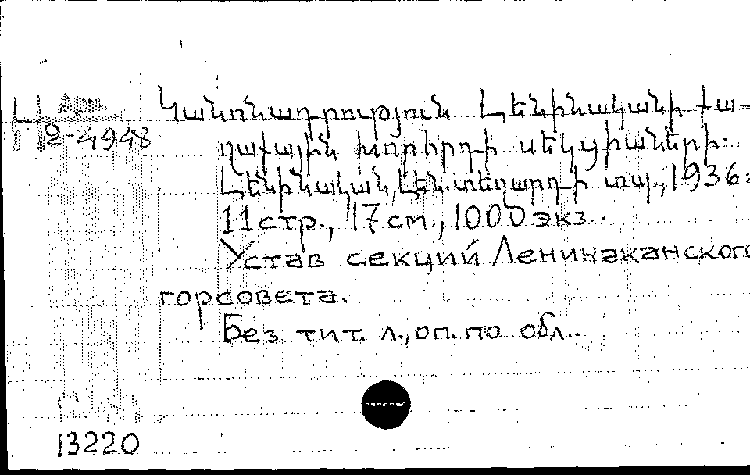 Կանոնադրություն Լենինականի քա-
2-4948
ղաքային խորհրդի սեկցիաների:
Լենինական, Լենտեղարդի տպ., 1936:
11 стр., 17 см, 1000 экз.
Устав секций Ленинаканского
горсовета.
Без тит. л., оп. по обл.
13220